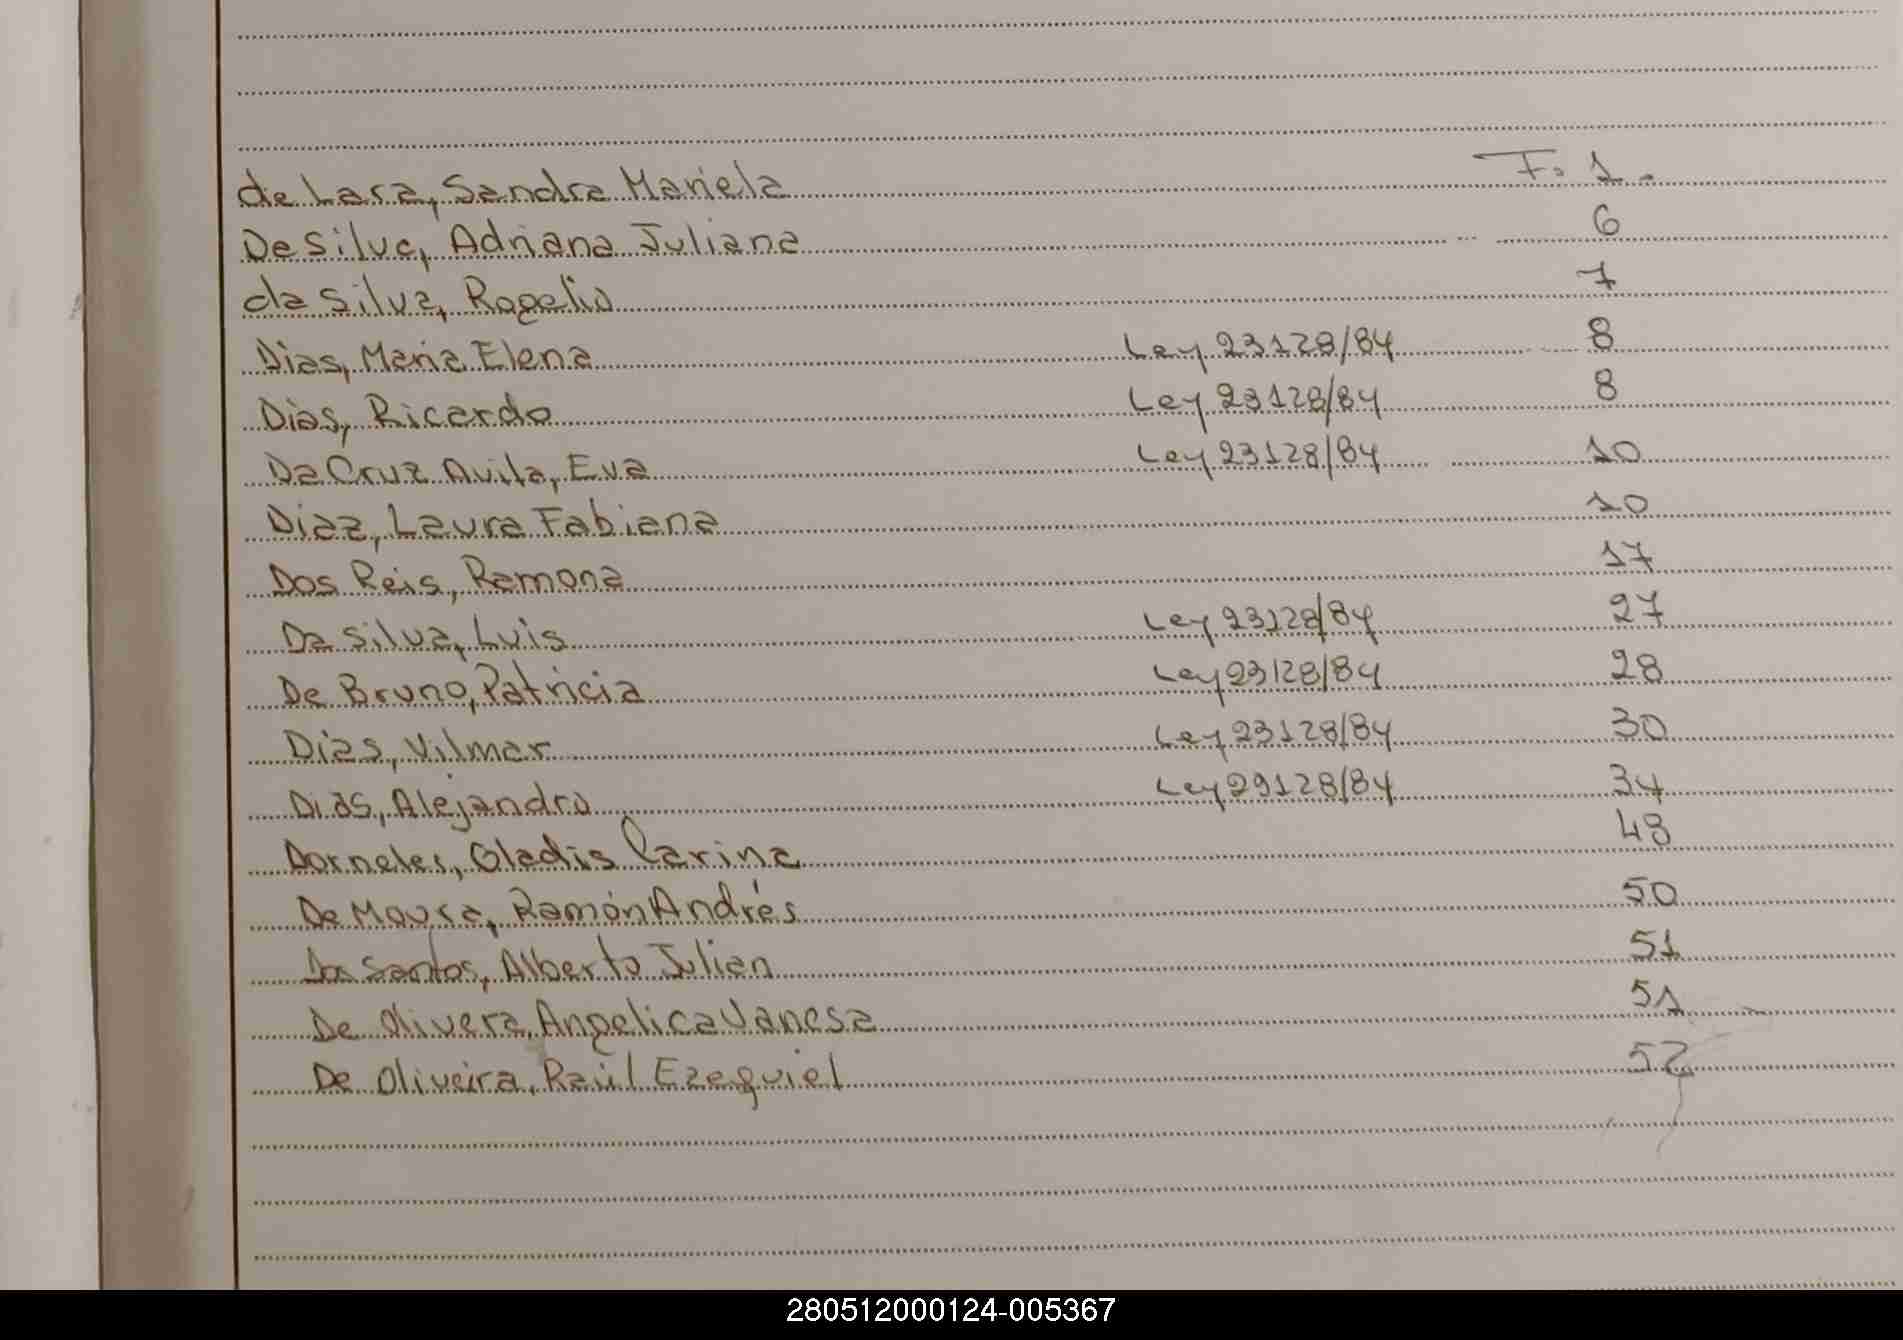 de Lara, Sandra Mariela F: 1.
De Silva, Adriana Juliana 6
da Silva, Rogelio 7
Dias, Maria Elena Ley 23128/84 8
Dias, Ricardo Ley 23128/84 8
Da Cruz Avila, Eva Ley 23128/84 10
Diaz, Laura Fabiana 10
Dos Reis, Ramona 17
Da Silva, Luis Ley 23128/84 27
De Bruno, Patricia Ley 23128/84 28
Dias, Vilmar Ley 23128/84 30
Dias, Alejandro Ley 23128/84 34
Dorneles, Gladis Carina 48
De Moura, Ramón Andrés 50
Dos Santos, Alberto Julian 51
De Olivera, Angelica Vanesa 51
De Oliveira, Raúl Ezequiel 52
280512000124-005367